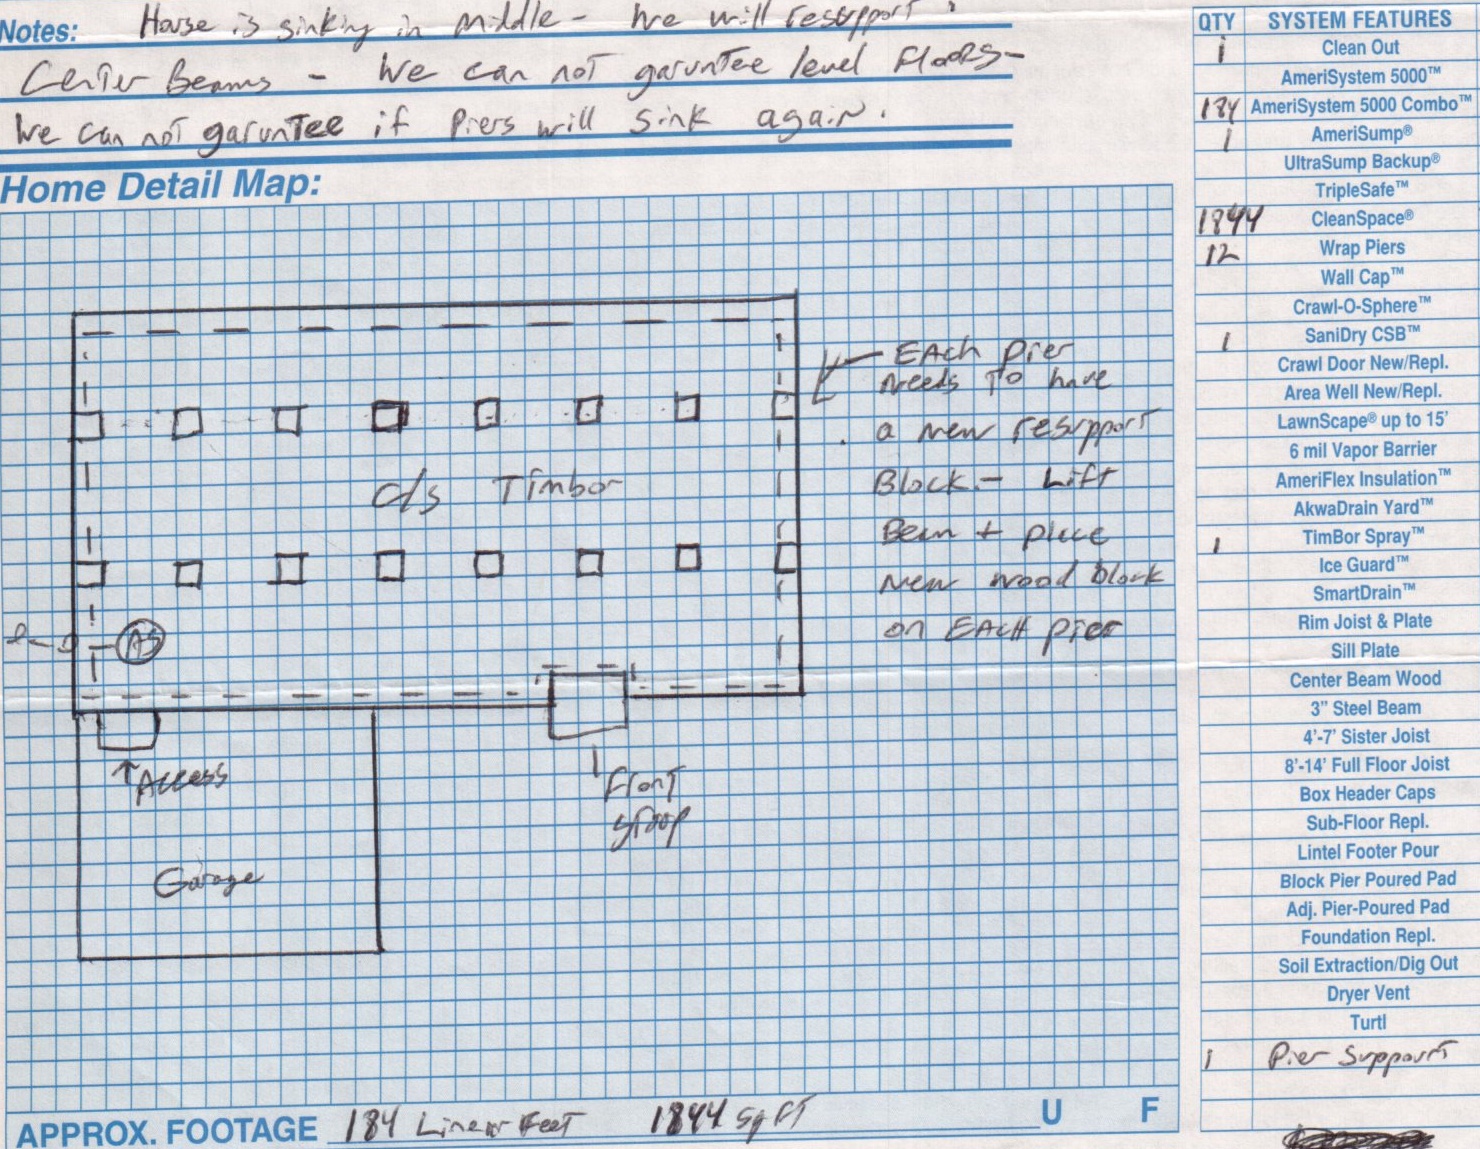 Notes: House is sinking in middle - We will resupport
Center Beams - We can not garuntee level floors -
We can not garuntee if Piers will sink again.
Home Detail Map:
EAch pier
needs to have
a new resupport
Block - Lift
Beam + place
new wood block
on EACH pier
c/s Timbor
AS
Access
Front
stoop
Garage
APPROX. FOOTAGE 184 Linear Feet 1844 sq ft U F
QTY SYSTEM FEATURES
1 Clean Out
AmeriSystem 5000™
184 AmeriSystem 5000 Combo™
1 AmeriSump®
UltraSump Backup®
TripleSafe™
1844 CleanSpace®
12 Wrap Piers
Wall Cap™
Crawl-O-Sphere™
1 SaniDry CSB™
Crawl Door New/Repl.
Area Well New/Repl.
LawnScape® up to 15'
6 mil Vapor Barrier
AmeriFlex Insulation™
AkwaDrain Yard™
1 TimBor Spray™
Ice Guard™
SmartDrain™
Rim Joist & Plate
Sill Plate
Center Beam Wood
3" Steel Beam
4'-7' Sister Joist
8'-14' Full Floor Joist
Box Header Caps
Sub-Floor Repl.
Lintel Footer Pour
Block Pier Poured Pad
Adj. Pier-Poured Pad
Foundation Repl.
Soil Extraction/Dig Out
Dryer Vent
Turtl
1 Pier Support